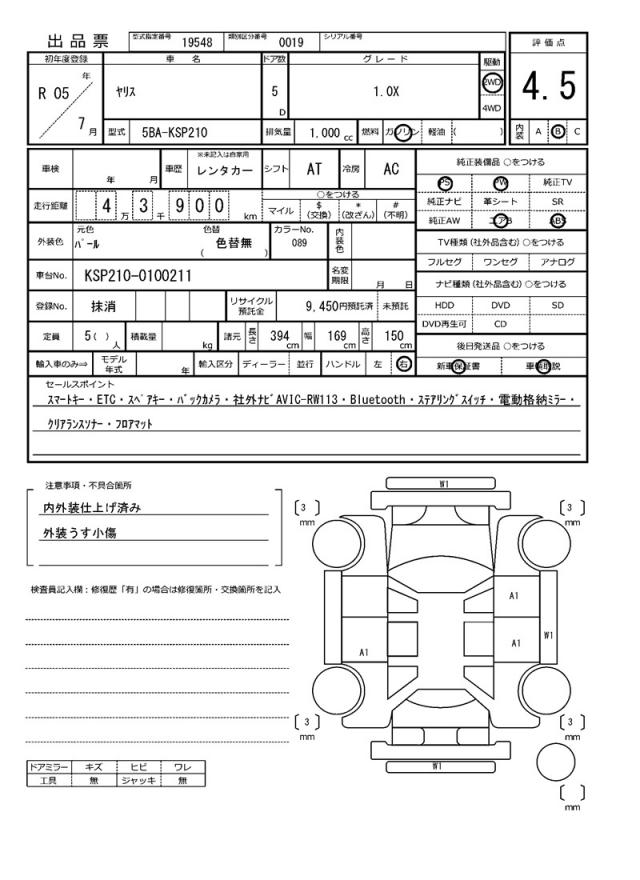 出品票 型式指定番号 19548 類別区分番号 0019 シリアル番号
初年度登録 車名 ドア数 グレード 駆動 評価点
R 05 年 7 月 ヤリス 5 D 1.0X 2WD 4WD 4.5
型式 5BA-KSP210 排気量 1.000 cc 燃料 ガソリン 軽油 ( ) 内装 A B C
車検 年 月 車歴 ※未記入は自家用 レンタカー シフト AT 冷房 AC
走行距離 4 万 3 千 9 0 0 km
○をつける
マイル $ (交換) * (改ざん) # (不明)
外装色 元色 パール 色替 色替無 ( ) カラーNo. 089 内装色
車台No. KSP210-0100211 名変期限 月 日
登録No. 抹消 リサイクル預託金 9,450円預託済 未預託
定員 5( ) 人 積載量 kg 諸元 長さ 394 cm 幅 169 cm 高さ 150 cm
輸入車のみ⇒ モデル年式 年 輸入区分 ディーラー 並行 ハンドル 左 右
純正装備品 ○をつける
PS PW 純正TV
純正ナビ 革シート SR
純正AW エアB ABS
TV種類(社外品含む)○をつける
フルセグ ワンセグ アナログ
ナビ種類(社外品含む)○をつける
HDD DVD SD
DVD再生可 CD
後日発送品 ○をつける
新車保証書 車輌取説
セールスポイント
スマートキー・ETC・スペアキー・バックカメラ・社外ナビAVIC-RW113・Bluetooth・ステアリングスイッチ・電動格納ミラー・
クリアランスソナー・フロアマット
注意事項・不具合箇所
内外装仕上げ済み
外装うす小傷
検査員記入欄:修復歴「有」の場合は修復箇所・交換箇所を記入
ドアミラー キズ ヒビ ワレ
工具 無 ジャッキ 無
W1
[ 3 ] mm [ 3 ] mm
A1
A1 A1 W1
[ 3 ] mm [ 3 ] mm
W1
[ ] mm